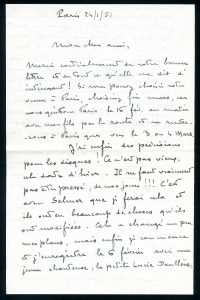 Paris 24/1/51
Mon cher ami,
Merci cordialement de votre bonne
lettre et de tout ce qu'elle me dit d'
intéressant! Si vous pouvez choisir votre
venue à Paris, choisissez fin mars, car
nous quittons Paris le 16 fév. au matin
avec mes fils par la route et ne rentre-
-rons à Paris que vers le 3 ou 4 Mars.
J'ai enfin des précisions
pour les disques. Ce n'est pas vieux,
cela date d'hier. Il ne faut vraiment
pas être pressé, de nos jours!!! C'est
avec Selmer que je ferai cela et
ils ont beaucoup de choses qu'ils
ont modifiées. Cela a changé un peu
mes plans, mais enfin je commence
et j'enregistre le 6 février avec ma
jeune chanteuse, la petite Lucie